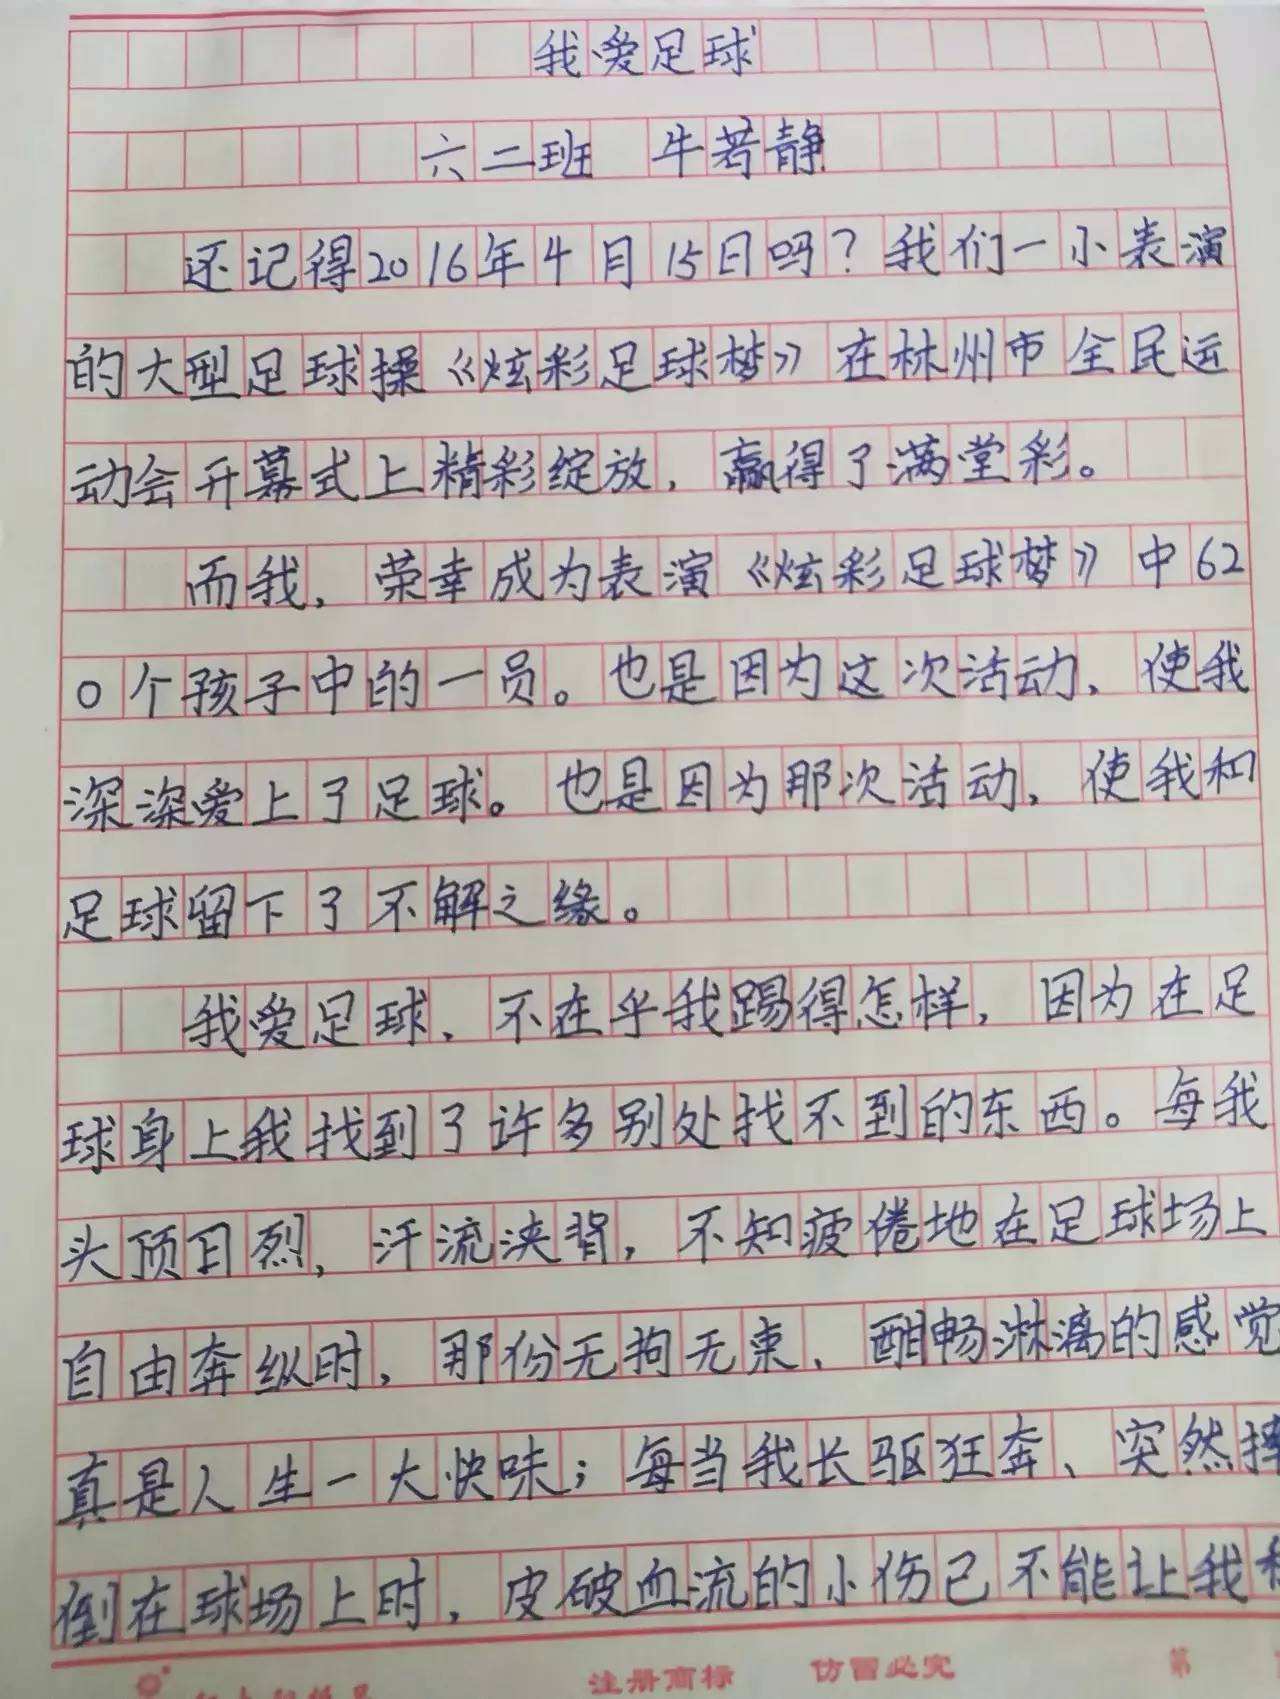 我爱足球
六二班 牛若静
还记得2016年4月15日吗？我们一小表演
的大型足球操《炫彩足球梦》在林州市全民运
动会开幕式上精彩绽放，赢得了满堂彩。
而我，荣幸成为表演《炫彩足球梦》中62
0个孩子中的一员。也是因为这次活动，使我
深深爱上了足球。也是因为那次活动，使我和
足球留下了不解之缘。
我爱足球，不在乎我踢得怎样，因为在足
球身上我找到了许多别处找不到的东西。每我
头顶日烈，汗流浃背，不知疲倦地在足球场上
自由奔纵时，那份无拘无束、酣畅淋漓的感觉
真是人生一大快味；每当我长驱狂奔、突然摔
倒在球场上时，皮破血流的小伤已不能让我
注册商标 仿冒必究 第